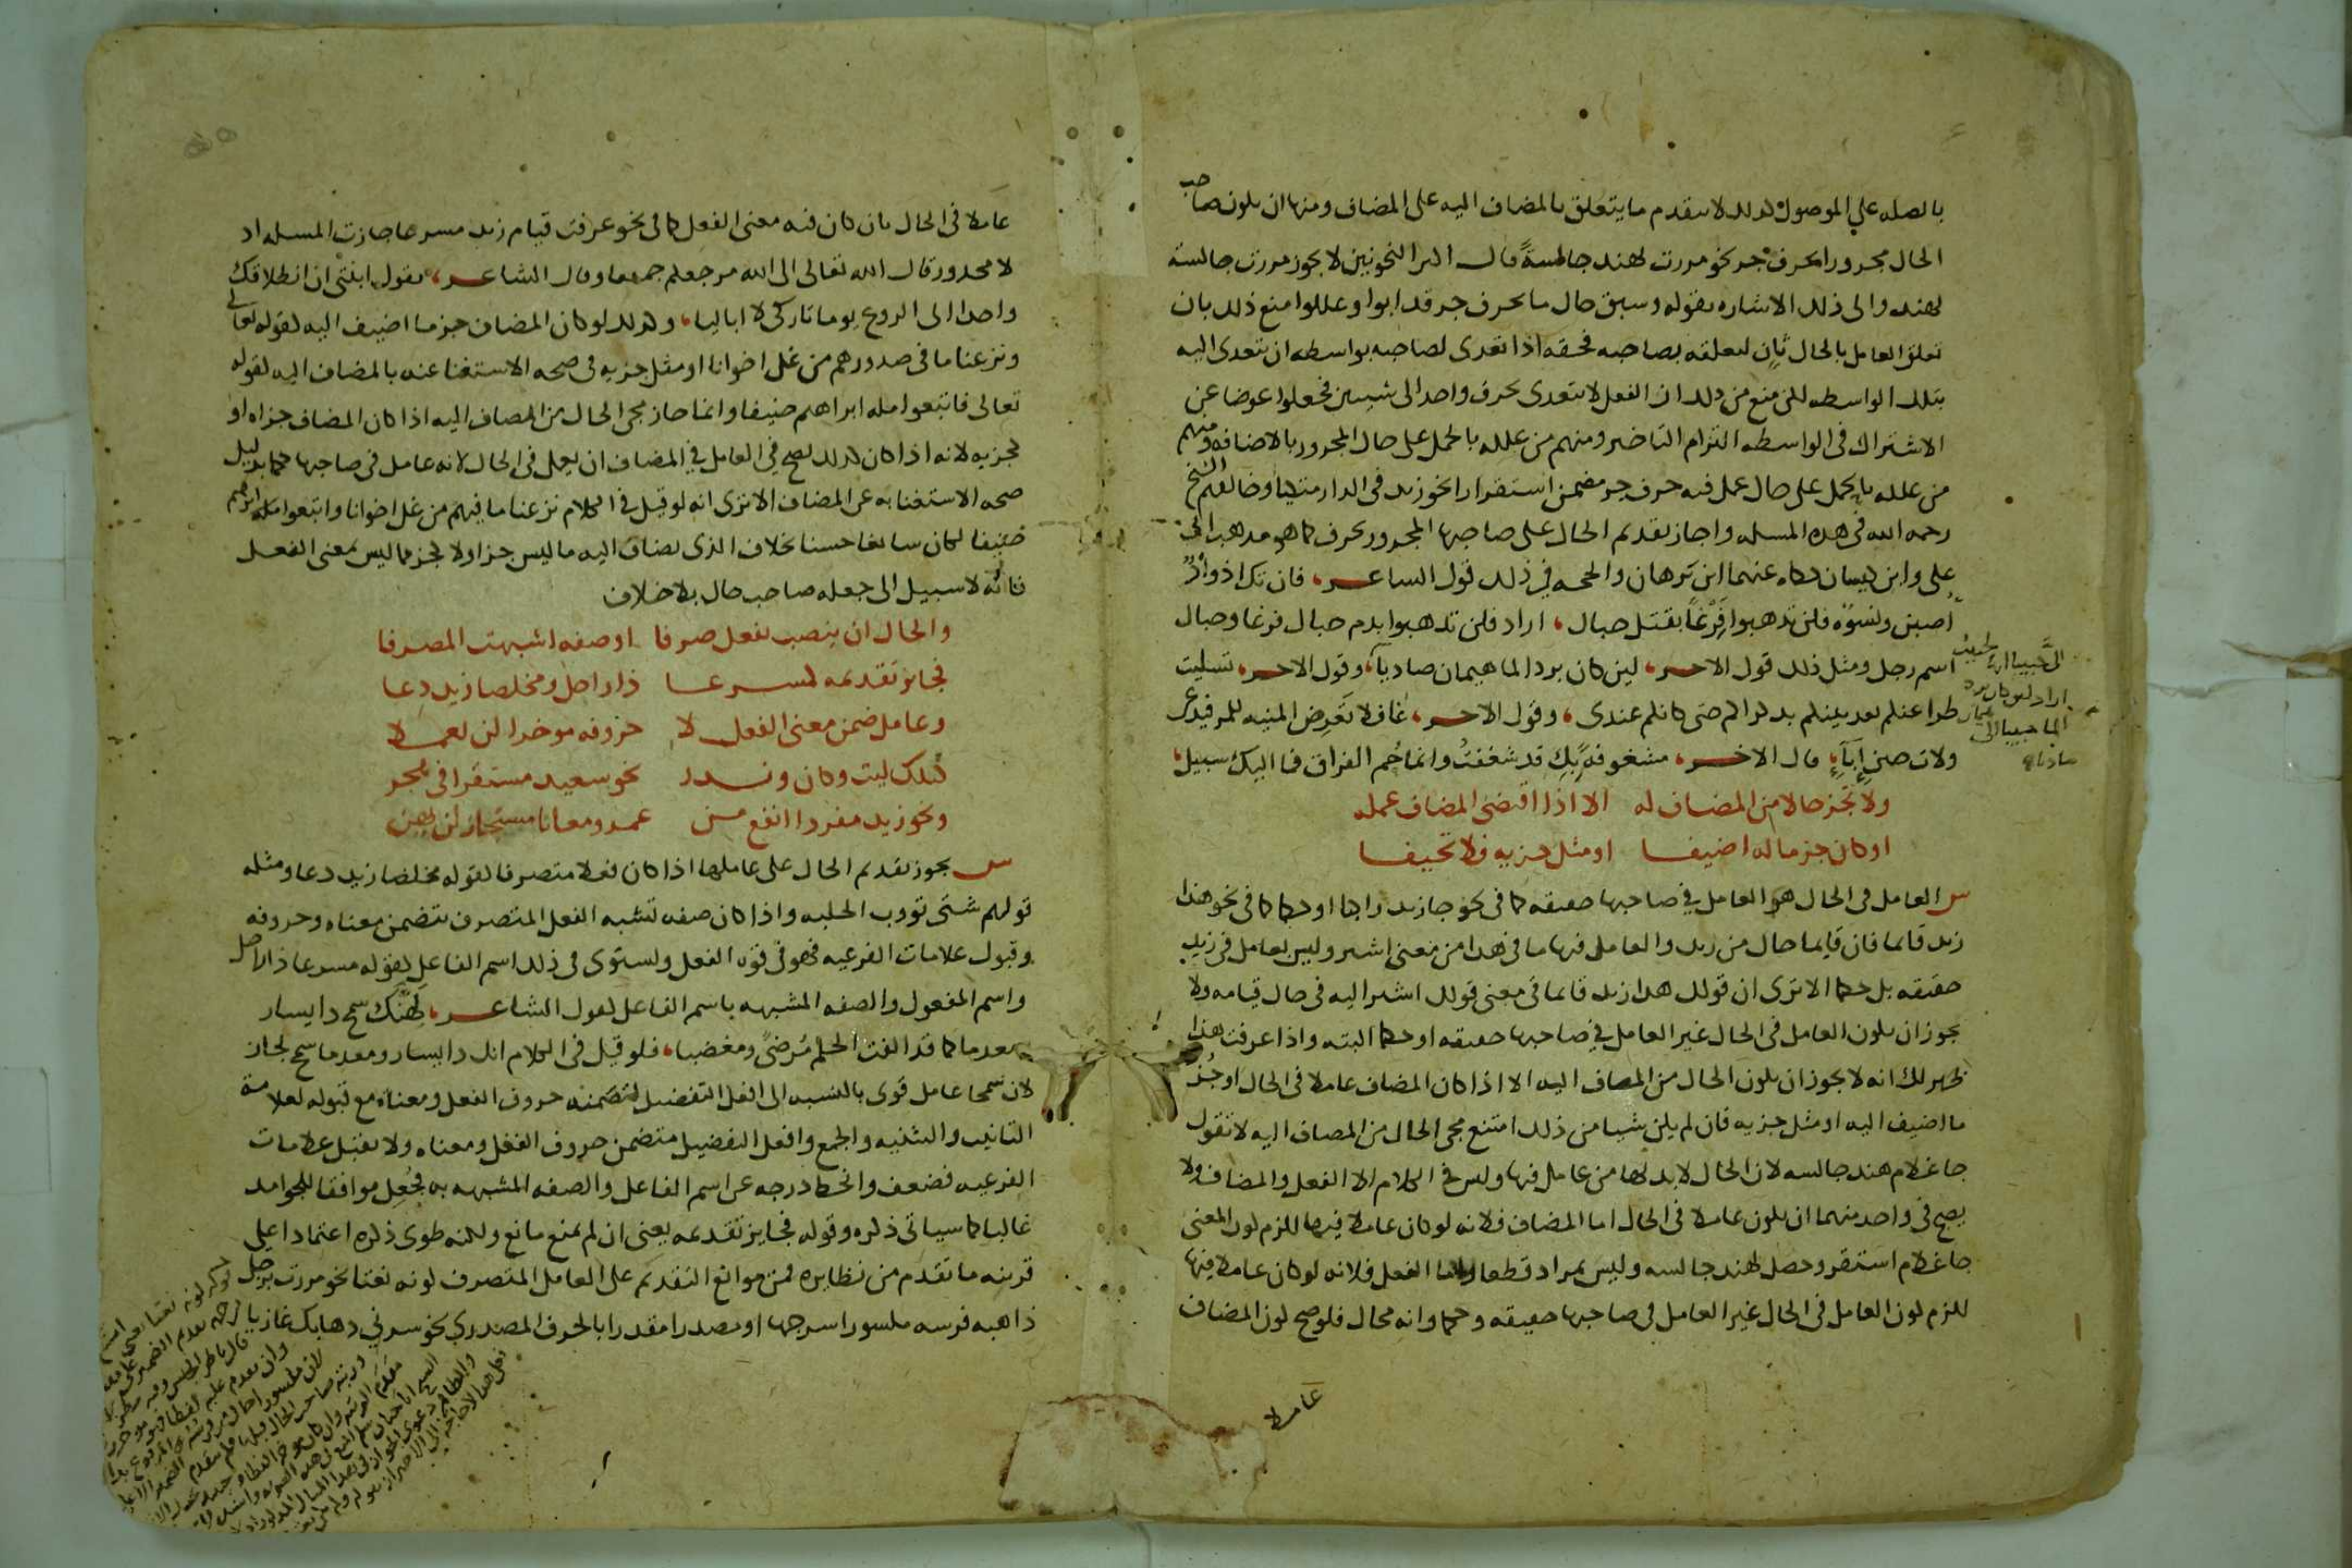 بالصله علي الموصول كذلك لا يتقدم ما يتعلق بالمضاف اليه على المضاف ومنها ان يكون صاحب
الحال مجرورا بحرف جر نحو مررت بهند جالسةً قال اكثر النحويين لا يجوز مررت جالسة
بهند والى ذلك الاشاره بقوله وسبق حال ما بحرف جر قد ابوا وعللوا منع ذلك بان
تعلق العامل بالحال ثانٍ لتعلقه بصاحبه فحقه اذا تعدى لصاحبه بواسطه ان يتعدى اليه
بتلك الواسطه لكن منع من ذلك ان الفعل لا يتعدى بحرف واحد الى شيين فجعلوا عوضا عن
الاشتراك في الواسطه التزام التاخير ومنهم من علله بالحمل على حال المجرور بالاضافه ومنهم
من علله بالحمل على حال عمل فيه حرف جر مضمن استقرارا نحو زيد في الدار متكيا وخالفهم الشيخ
رحمه الله في هذه المسله واجاز تقديم الحال على صاحبها المجرور بحرف كما هو مذهب ابي
علي وابن كيسان حكاه عنهما ابن برهان والحجه في ذلك قول الشاعر، فان تك اذوادٌ
اصبن ونسوة فلن تذهبوا فِرْغاً بقتل حبال، اراد فلن تذهبوا بدم حبال فرغا وحبال
اسم رجل ومثل ذلك قول الاخر، لين كان برد الما هيمان صاديا، وقول الاخر، تسليت
طرا عنكم بعد بينكم بذكراكم حتى كانكم عندي، وقول الاخر، غافلا تعرض المنيه للمرء فيدعى
ولات حين إباءِ، قال الاخر، مشغوفة بكِ قد شغفتُ وانما حُم الفراق فما اليك سبيل،
ولا تجز حالا من المضاف له الا اذا اقتضى المضاف عمله
او كان جزء ما له اضيفا او مثل جزيه فلا تحيفا
س العامل في الحال هو العامل في صاحبها حقيقه كما في نحو جا زيد راكبا او حكما كما في نحو هذا
زيد قايما فان قايما حال من زيد والعامل فيها ما في هذا من معنى اشير وليس بعامل في زيد
حقيقه بل حكما الا ترى ان قولك هذا زيد قايما في معنى قولك اشير اليه في حال قيامه ولا
يجوز ان يكون العامل في الحال غير العامل في صاحبها حقيقه او حكما البته واذا عرفت هذا
ظهر لك انه لا يجوز ان يكون الحال من المضاف اليه الا اذا كان المضاف عاملا في الحال او جُزءَ
ما اضيف اليه او مثل جزيه فان لم يكن شيا من ذلك امتنع مجي الحال من المضاف اليه لا تقول
جا غلام هند جالسه لان الحال لا بد لها من عامل فيها وليس في الكلام الا الفعل والمضاف ولا
يصح في واحد منهما ان يكون عاملا في الحال اما المضاف فلانه لو كان عاملا فيها للزم كون المعنى
جا غلام استقر وحصل لهند جالسه وليس بمراد قطعا واما الفعل فلانه لو كان عاملا فيها
للزم كون العامل في الحال غير العامل في صاحبها حقيقه وحكما وانه محال فلو صح كون المضاف
عاملا
عاملا في الحال بان كان فيه معنى الفعل كما في نحو عرفت قيام زيد مسرعا جازت المسله اذ
لا محذور قال الله تعالى الى الله مرجعكم جميعا وقال الشاعر، تقول ابنتي ان انطلاقك
واحدا الى الروع يوما تاركي لا اباليا، وكذلك لو كان المضاف جزء ما اضيف اليه كقوله تعالى
ونزعنا ما في صدورهم من غل اخوانا او مثل جزيه في صحه الاستغنا عنه بالمضاف اليه كقوله
تعالى فاتبعوا مله ابراهيم حنيفا وانما جاز مجي الحال من المضاف اليه اذا كان المضاف جزاه او
كجزيه لانه اذا كان كذلك يصح في العامل في المضاف ان يعمل في الحال لانه عامل في صاحبها حكما بدليل
صحه الاستغنا به عن المضاف الا ترى انه لو قيل في الكلام نزعنا ما فيهم من غل اخوانا واتبعوا مله ابراهيم
حنيفا لكان سايغا حسنا بخلاف الذي يضاف اليه ما ليس جزا ولا كجز مما ليس بمعنى الفعل
فانه لا سبيل الى جعله صاحب حال بلا خلاف
والحال ان ينصب بفعل صرفا او صفه اشبهت المصرفا
فجايز تقديمه كمسرعا ذا راحل ومخلصا زيد دعا
وعامل ضمن معنى الفعل لا حروفه موخرا لن يعملا
كتلك ليت وكان وندر نحو سعيد مستقرا في هجر
ونحو زيد مفردا انفع من عمرو معانا مستجاز لن يهن
س يجوز تقديم الحال على عاملها اذا كان فعلا متصرفا كقوله مخلصا زيد دعا ومثله
قولهم شتى تووب الحلبه واذا كان صفه تشبه الفعل المتصرف بتضمن معناه وحروفه
وقبول علامات الفرعيه فهو في قوه الفعل ويستوي في ذلك اسم الفاعل كقوله مسرعا ذا راحل
واسم المفعول والصفه المشبهه باسم الفاعل كقول الشاعر، لَهِنَّك سمح ذا يسار
ومعدما كما قد الفت الحلم مُرضىً ومغضبا، فلو قيل في الكلام انك ذا يسار ومعدما سمح لجاز
لان سمحا عامل قوي بالنسبه الى افعل التفضيل لتضمنه حروف الفعل ومعناه مع قبوله لعلامة
التانيث والتثنيه والجمع وافعل التفضيل متضمن حروف الفعل ومعناه ولا يقبل علامات
الفرعيه فضعف وانحط درجه عن اسم الفاعل والصفه المشبهه به فجُعِل موافقا للجوامد
غالبا كما سياتي ذكره وقوله فجايز تقديمه يعني ان لم يمنع مانع ولكنه طوى ذكره اعتمادا على
قرينه ما تقدم من نظايره فمن موانع التقديم على العامل المتصرف كونه نعتا نحو مررت برجل
ذاهبه فرسه مكسورا سرجها او مصدرا مقدرا بالحرف المصدري نحو سرني ذهابك غازيا